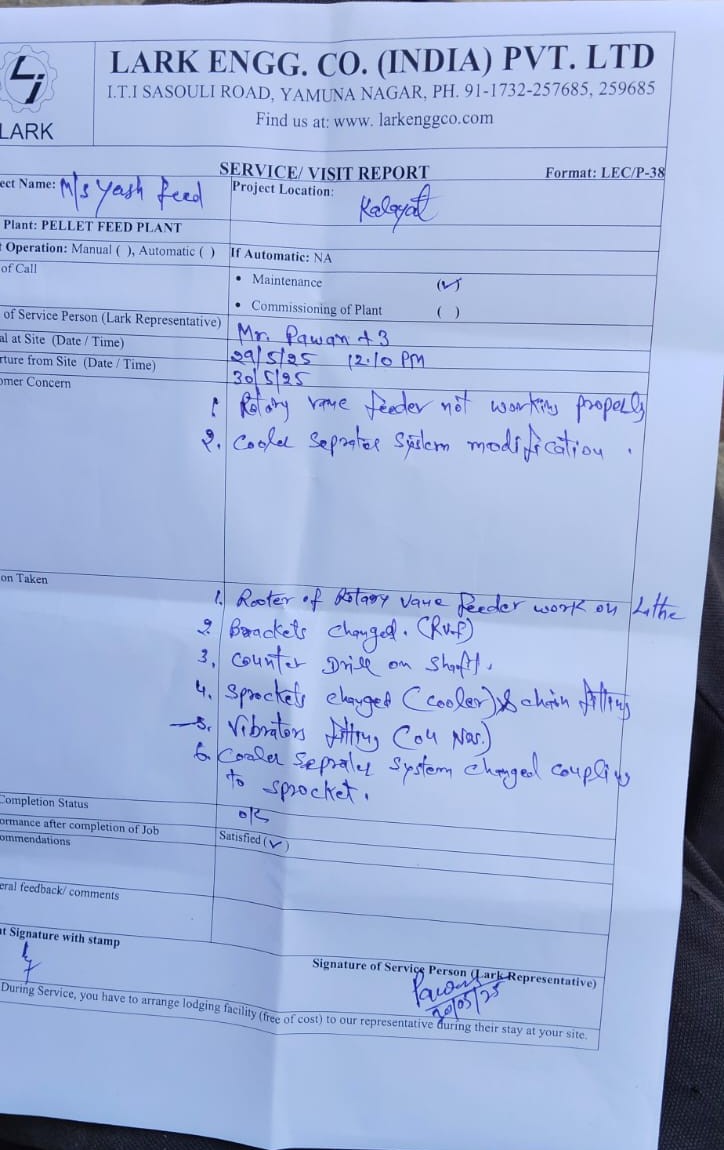 LARK ENGG. CO. (INDIA) PVT. LTD
I.T.I SASOULI ROAD, YAMUNA NAGAR, PH. 91-1732-257685, 259685
Find us at: www. larkenggco.com
LARK
SERVICE/ VISIT REPORT
Format: LEC/P-38
ect Name: M/s Yash feed
Project Location: Kalayat
Plant: PELLET FEED PLANT
Operation: Manual ( ), Automatic ( )
If Automatic: NA
of Call
• Maintenance (✓)
• Commissioning of Plant ( )
of Service Person (Lark Representative)
Mr. Pawan +3
al at Site (Date / Time)
29/5/25 12:10 PM
rture from Site (Date / Time)
30/5/25
omer Concern
1. Rotary vane feeder not working properly
2. Cooler Seprater System modification.
on Taken
1. Rooter of Rotary vane feeder work on Lathe
2. Brackets changed. (RVF)
3. Counter Drill on shaft.
4. Sprockets changed (cooler) & chain fitting
5. Vibrators fitting (04 Nos.)
6. Cooler Seprater System changed coupling
to sprocket.
Completion Status
ok
ormance after completion of Job
Satisfied (✓)
ommendations
eral feedback/ comments
t Signature with stamp
Signature of Service Person (Lark Representative)
Pawan
30/05/25
During Service, you have to arrange lodging facility (free of cost) to our representative during their stay at your site.